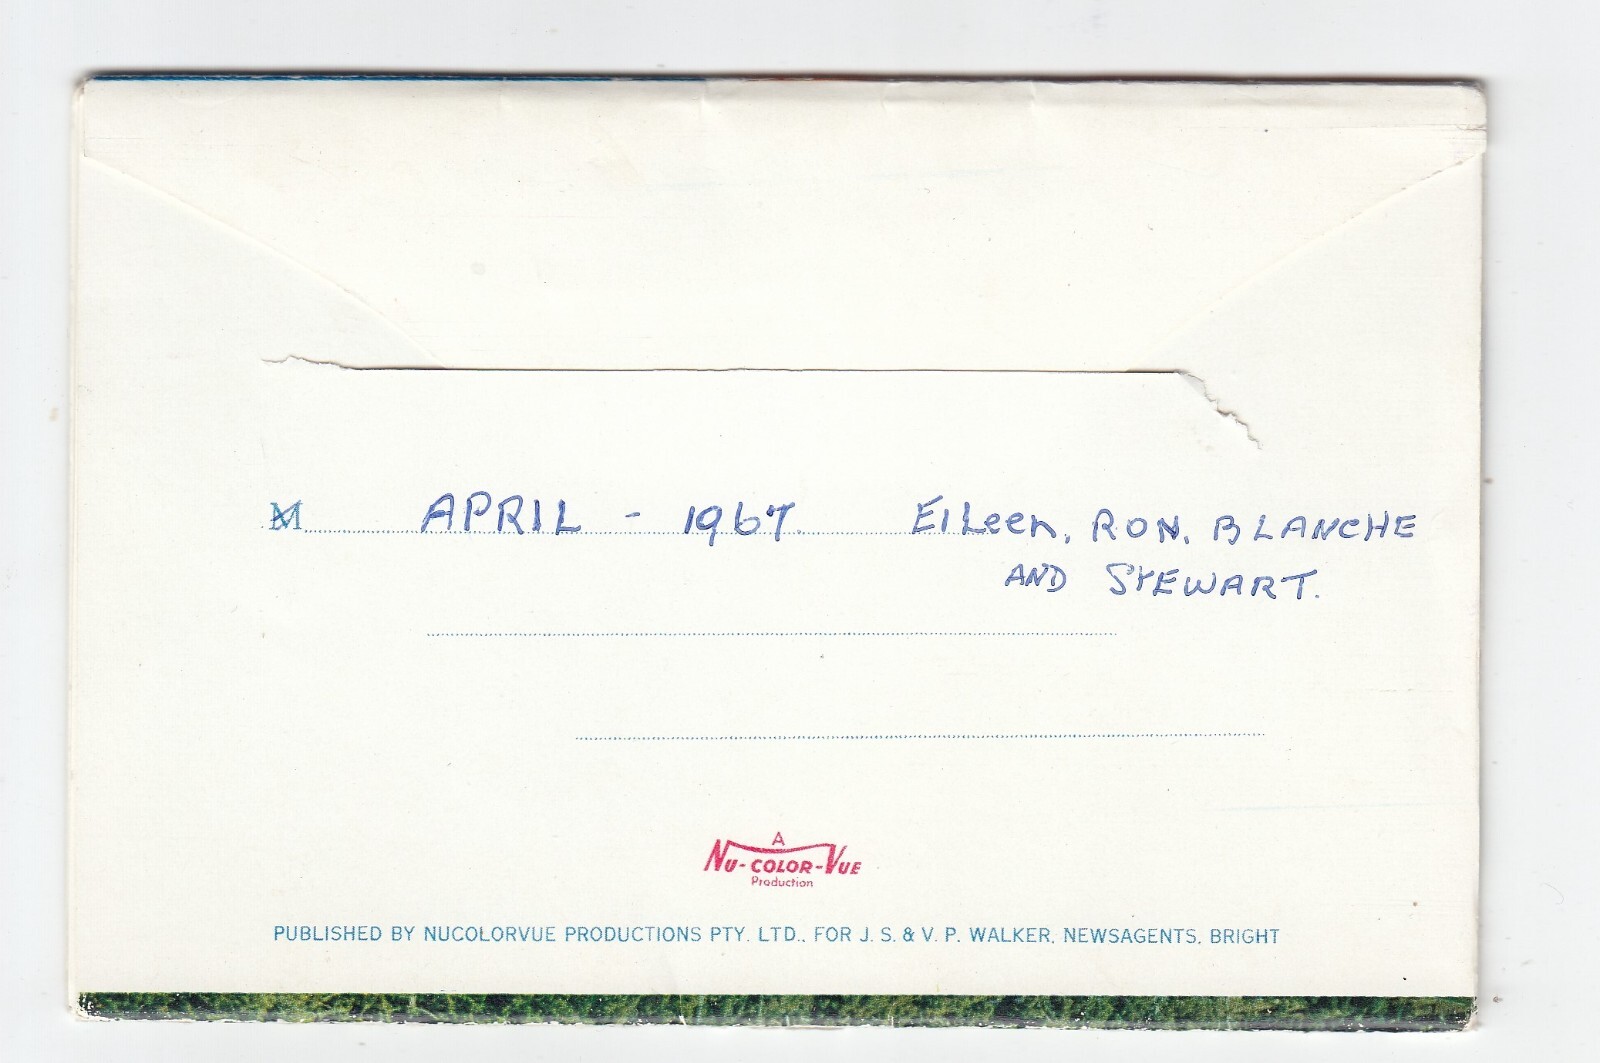 M APRIL - 1967. Eileen, RON, BLANCHE
AND STEWART.
A
NU-COLOR-VUE
Production
PUBLISHED BY NUCOLORVUE PRODUCTIONS PTY. LTD., FOR J. S. & V. P. WALKER, NEWSAGENTS, BRIGHT